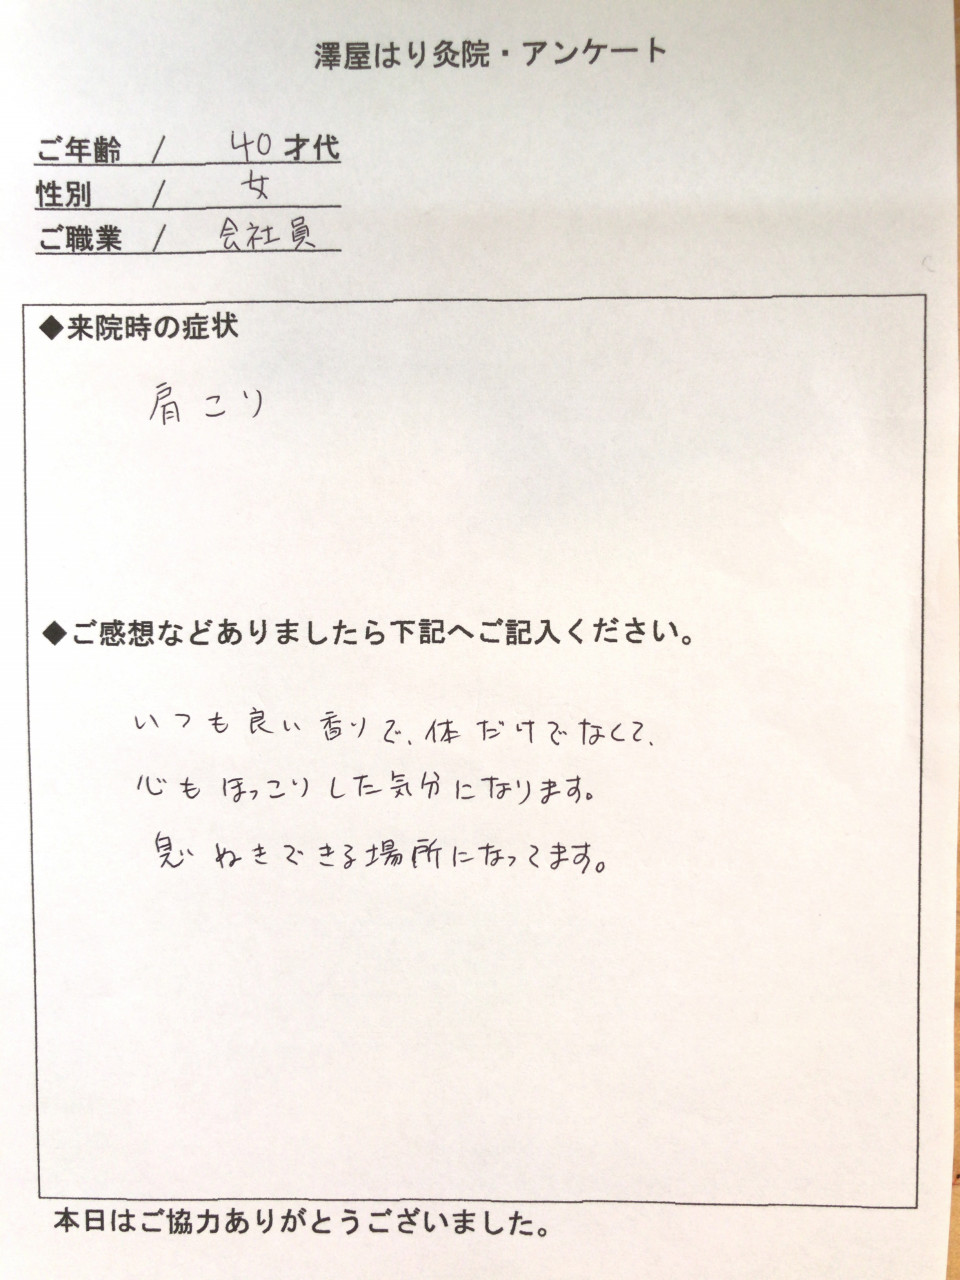 澤屋はり灸院・アンケート
ご年齢 / 40才代
性別 / 女
ご職業 / 会社員
◆来院時の症状
肩こり
◆ご感想などありましたら下記へご記入ください。
いつも良い香りで、体だけでなくて、
心もほっこりした気分になります。
息ぬきできる場所になってます。
本日はご協力ありがとうございました。